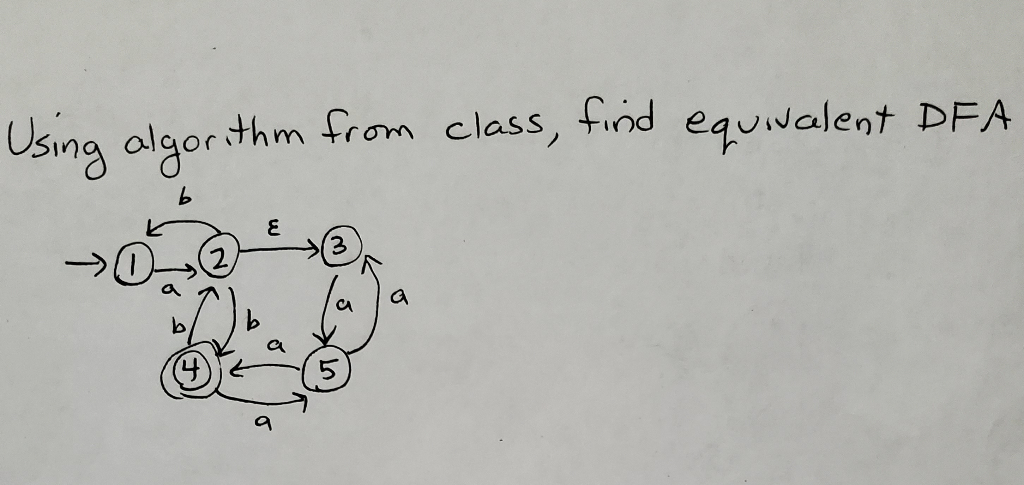 Using algorithm from class, find equivalent DFA
b
ε
1 2 3
a
b b a a
a
4 5
a